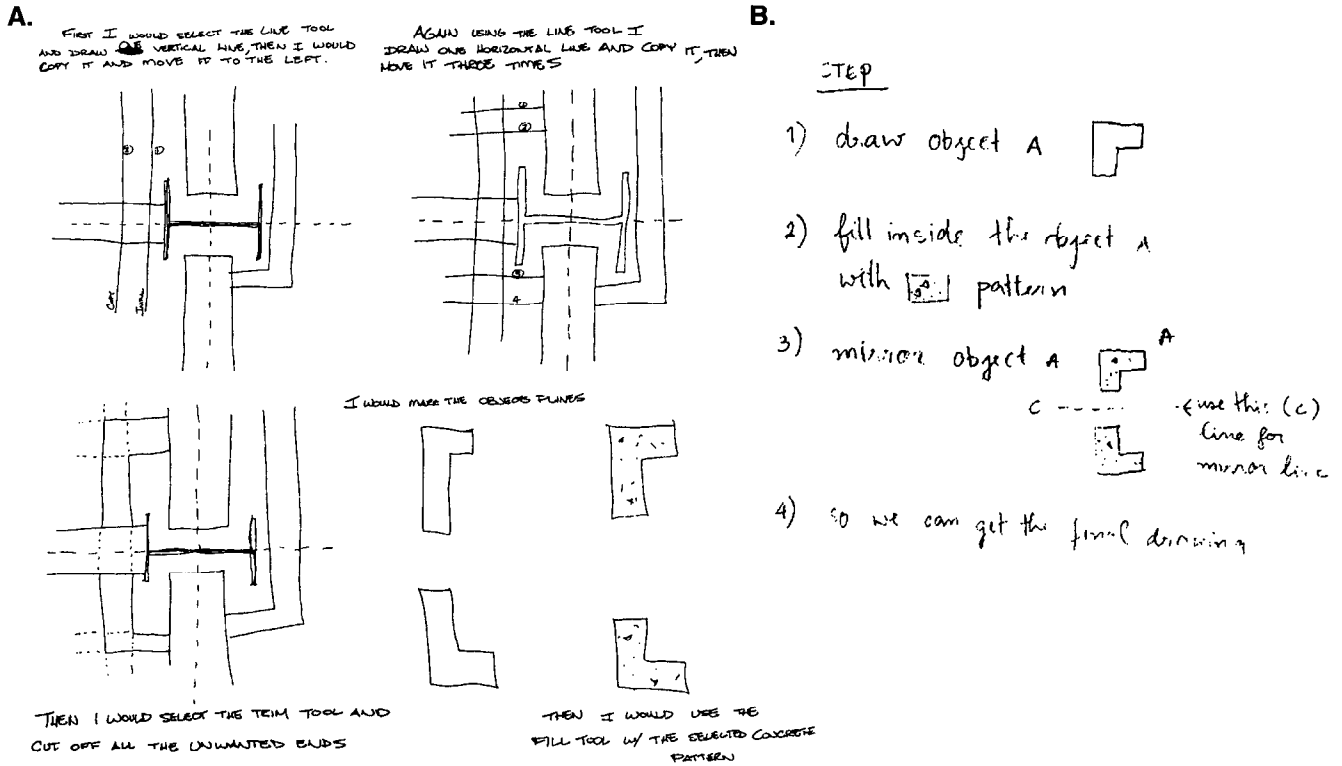 A.
FIRST I WOULD SELECT THE LINE TOOL
AND DRAW ONE VERTICAL LINE, THEN I WOULD
COPY IT AND MOVE IT TO THE LEFT.
2
1
COPY
AGAIN USING THE LINE TOOL I
DRAW ONE HORIZONTAL LINE AND COPY IT, THEN
MOVE IT THREE TIMES
1
2
3
4
THEN I WOULD SELECT THE TRIM TOOL AND
CUT OFF ALL THE UNWANTED ENDS
I WOULD MAKE THE OBJECTS PLINES
THEN I WOULD USE THE
FILL TOOL W/ THE SELECTED CONCRETE
PATTERN
B.
STEP
1) draw object A
2) fill inside the object A
with pattern
3) mirror object A
A
C
use this (c)
line for
mirror line
4) so we can get the final drawing